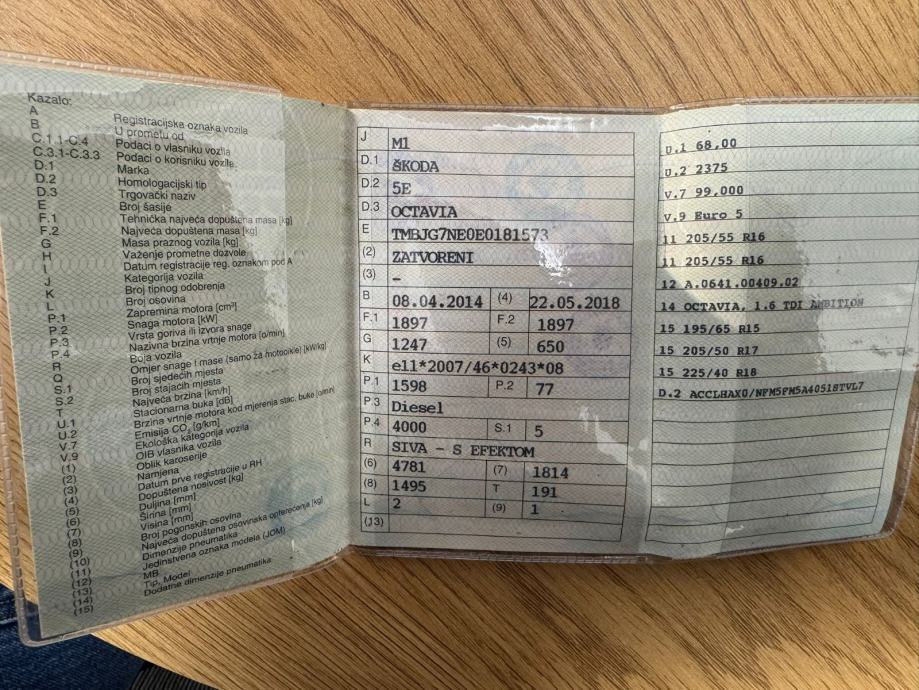 Kazalo:
A Registracijska oznaka vozila
B U prometu od
C.1.1-C.4 Podaci o vlasniku vozila
C.3.1-C.3.3 Podaci o korisniku vozila
D.1 Marka
D.2 Homologacijski tip
D.3 Trgovački naziv
E Broj šasije
F.1 Tehnička najveća dopuštena masa [kg]
F.2 Najveća dopuštena masa [kg]
G Masa praznog vozila [kg]
H Važenje prometne dozvole
I Datum registracije reg. oznakom pod A
J Kategorija vozila
K Broj tipnog odobrenja
L Broj osovina
P.1 Zapremina motora [cm³]
P.2 Snaga motora [kW]
P.3 Vrsta goriva ili izvora snage
P.4 Nazivna brzina vrtnje motora [o/min]
R Boja vozila
Q Omjer snage i mase (samo za motocikle) [kW/kg]
S.1 Broj sjedećih mjesta
S.2 Broj stajaćih mjesta
T Najveća brzina [km/h]
U.1 Stacionarna buka [dB]
U.2 Brzina vrtnje motora kod mjerenja stac. buke [o/min]
V.7 Emisija CO₂ [g/km]
V.9 Ekološka kategorija vozila
(1) OIB vlasnika vozila
(2) Oblik karoserije
(3) Namjena
(4) Datum prve registracije u RH
(5) Dopuštena nosivost [kg]
(6) Duljina [mm]
(7) Širina [mm]
(8) Visina [mm]
(9) Broj pogonskih osovina
(10) Najveća dopuštena osovinska opterećenja [kg]
(11) Dimenzije pneumatika
(12) Jedinstvena oznaka modela (JOM)
(13) MB
(14) Tip, Model
(15) Dodatne dimenzije pneumatika
J M1
D.1 ŠKODA
D.2 5E
D.3 OCTAVIA
E TMBJG7NE0E0181573
(2) ZATVORENI
(3) –
B 08.04.2014 (4) 22.05.2018
F.1 1897 F.2 1897
G 1247 (5) 650
K e11*2007/46*0243*08
P.1 1598 P.2 77
P.3 Diesel
P.4 4000 S.1 5
R SIVA - S EFEKTOM
(6) 4781 (7) 1814
(8) 1495 T 191
L 2 (9) 1
(13)
U.1 68,00
U.2 2375
V.7 99,000
V.9 Euro 5
11 205/55 R16
11 205/55 R16
12 A.0641.00409.02
14 OCTAVIA, 1.6 TDI AMBITION
15 195/65 R15
15 205/50 R17
15 225/40 R18
D.2 ACCLHAX0/NFM5FM5A40518TVL7